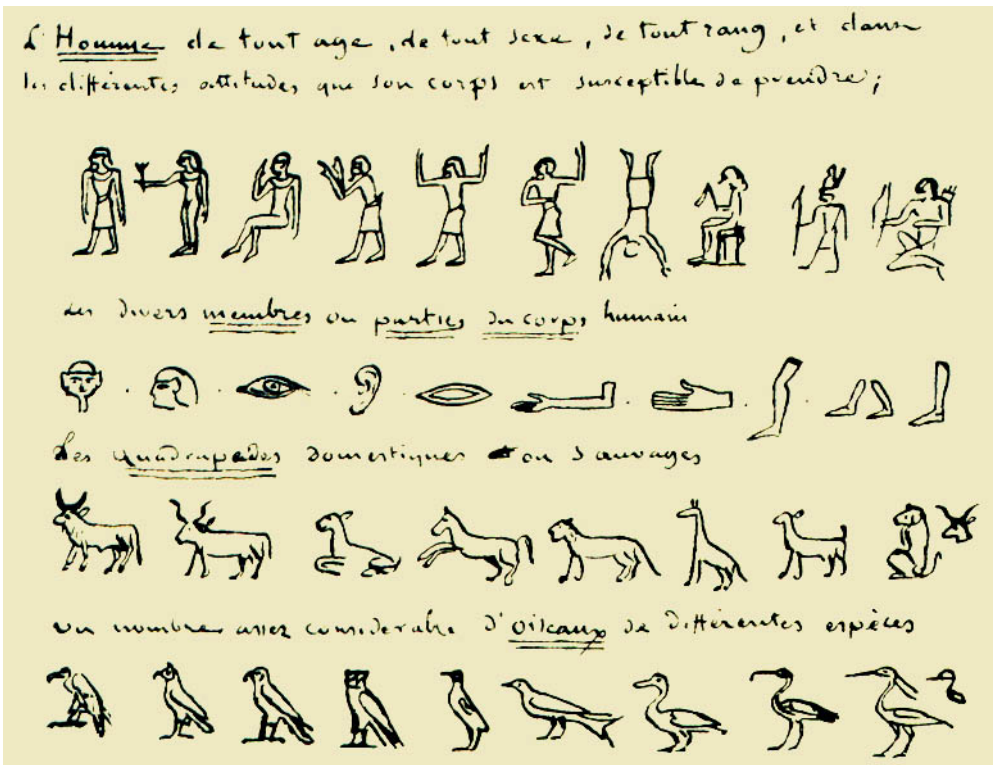 L'Homme de tout age, de tout sexe, de tout rang, et dans
les différentes attitudes que son corps est susceptible de prendre;
Les divers membres ou parties du corps humain
Les quadrupedes domestiques ou sauvages
un nombre assez considerable d'oiseaux de différentes espèces